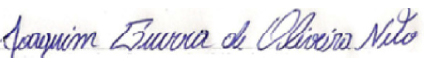 Joaquim Guerra de Oliveira Neto